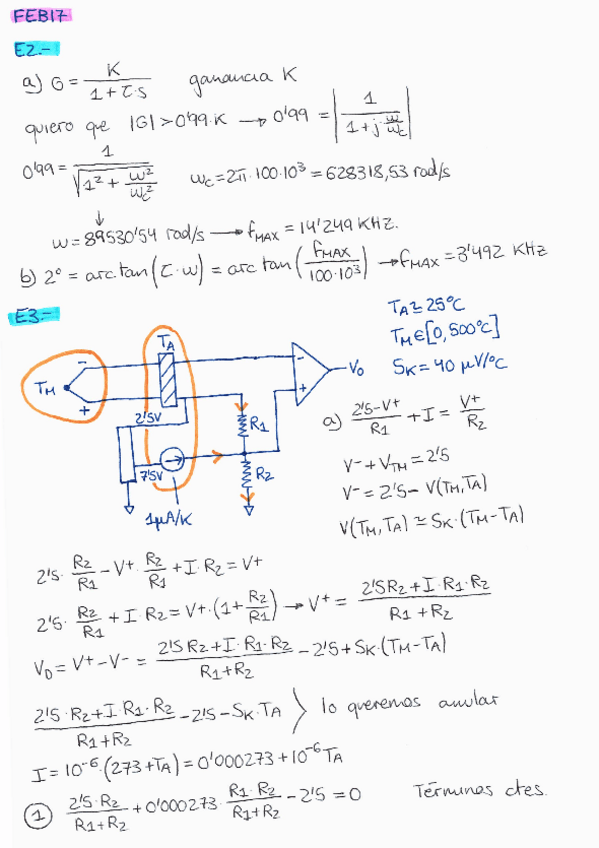 FEB17
E2.-
a) G = K / (1 + τ·s)   ganancia K
quiero que |G| > 0'99·K → 0'99 = |1 / (1 + j w/wc)|
0'99 = 1 / √(1² + w²/wc²)   wc = 2π·100·10³ = 628318,53 rad/s
↓
w = 89530'54 rad/s → fMAX = 14'249 KHz.
b) 2° = arc.tan(τ·w) = arc tan(fMAX / 100·10³) → fMAX = 3'492 KHz
E3.-
TA ≃ 25°C
TM ∈ [0, 500°C]
SK = 40 μV/°C
TA
TM
-
+
-
+
V0
2'5V
R1
7'5V
R2
1μA/K
a) (2'5 - V⁺)/R1 + I = V⁺/R2
V⁻ + VTM = 2'5
V⁻ = 2'5 - V(TM, TA)
V(TM, TA) ≃ SK·(TM - TA)
2'5· R2/R1 - V⁺· R2/R1 + I·R2 = V⁺
2'5· R2/R1 + I·R2 = V⁺·(1 + R2/R1) → V⁺ = (2'5R2 + I·R1·R2) / (R1 + R2)
V0 = V⁺ - V⁻ = (2'5 R2 + I·R1·R2) / (R1 + R2) - 2'5 + SK·(TM - TA)
(2'5·R2 + I·R1·R2) / (R1 + R2) - 2'5 - SK·TA } lo queremos anular
I = 10⁻⁶·(273 + TA) = 0'000273 + 10⁻⁶ TA
1 2'5·R2 / (R1 + R2) + 0'000273· R1·R2 / (R1 + R2) - 2'5 = 0   Términos ctes.